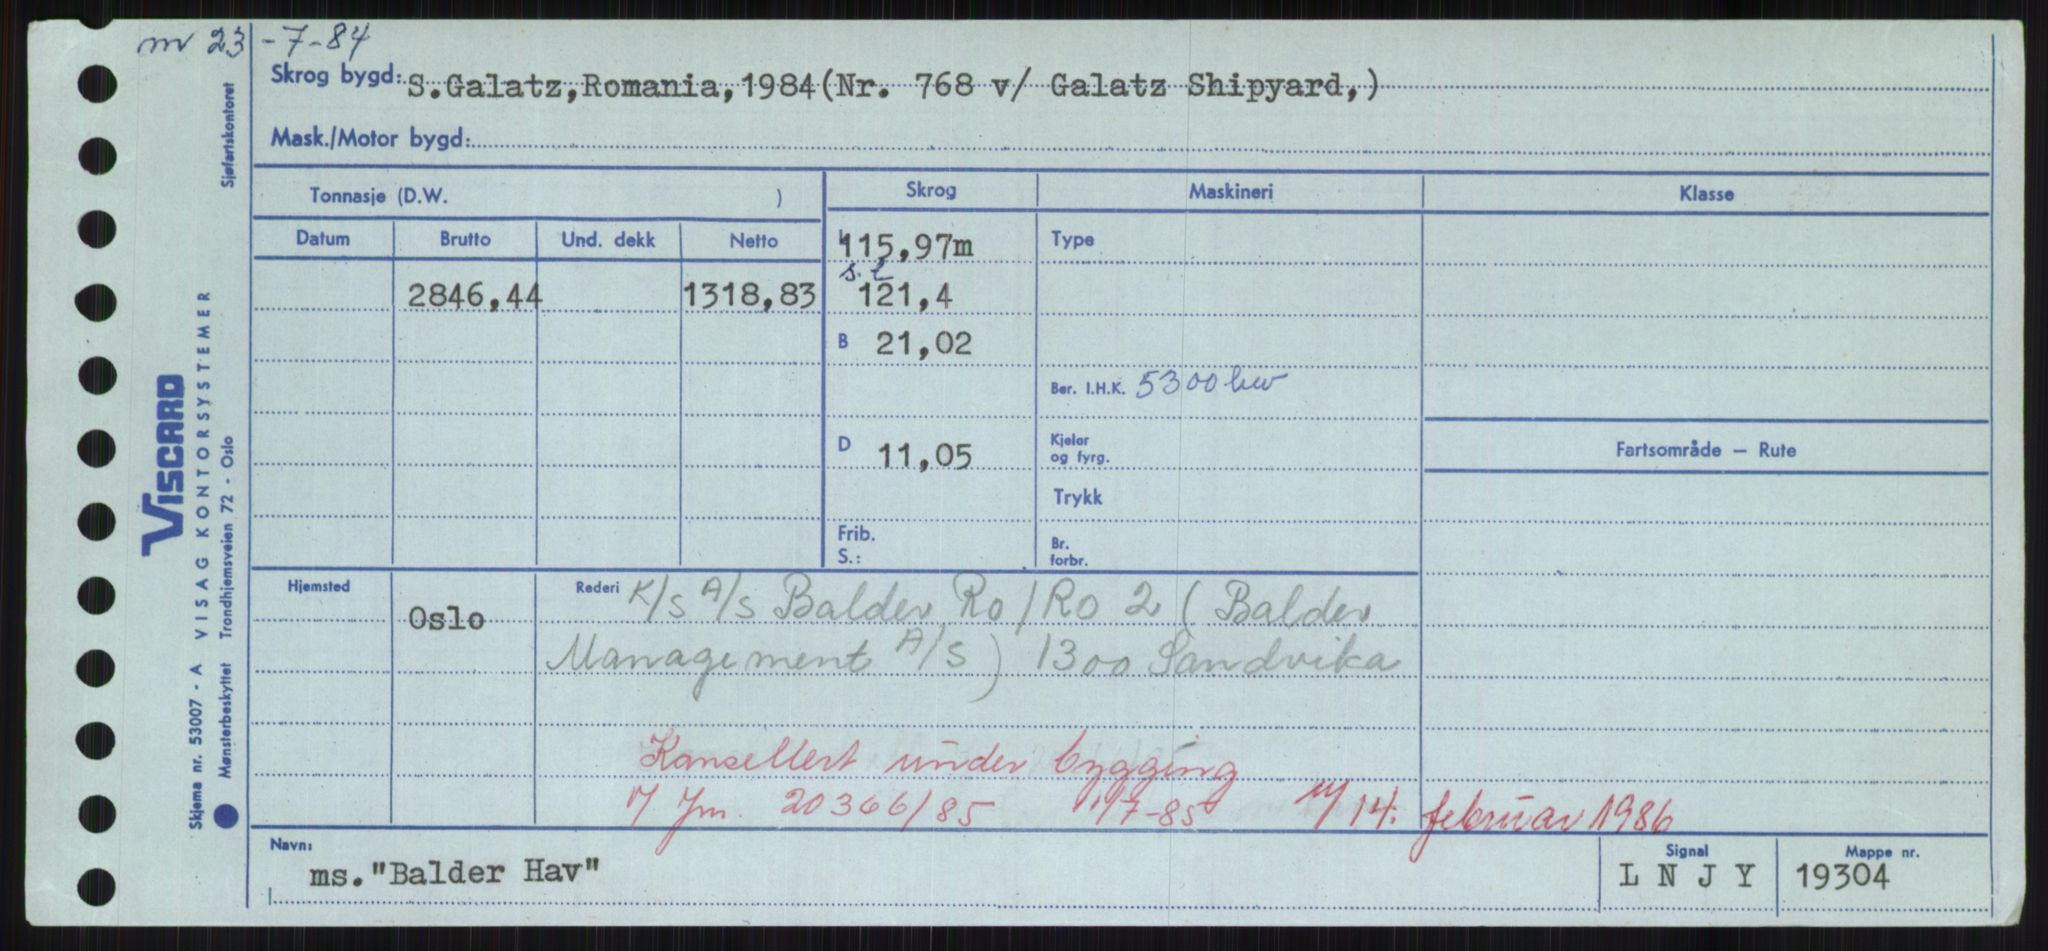 m 23-7-84
Skrog bygd: S.Galatz,Romania,1984(Nr. 768 v/ Galatz Shipyard,)
Mask./Motor bygd:
Tonnasje (D.W. )
Skrog
Maskineri
Klasse
Datum
Brutto
Und. dekk
Netto
L 115,97m
Type
2846,44
1318,83
s.l
121,4
B 21,02
Ber. I.H.K. 5300 kw
D 11,05
Kjeler
og fyrg.
Fartsområde – Rute
Trykk
Frib.
S.:
Br.
forbr.
Hjemsted
Oslo
Rederi K/S A/S Balder Ro/Ro 2 (Balder
Management A/S) 1300 Sandvika
Kansellert under bygging
Jm. 20366/85 11/7-85 14. februar 1986
Navn:
ms."Balder Hav"
Signal
L N J Y
Mappe nr.
19304
VISCARD
VISAG KONTORSYSTEMER
Skjema nr. 53007 - A
Mønsterbeskyttet Trondhjemsveien 72 - Oslo
Sjøfartskontoret